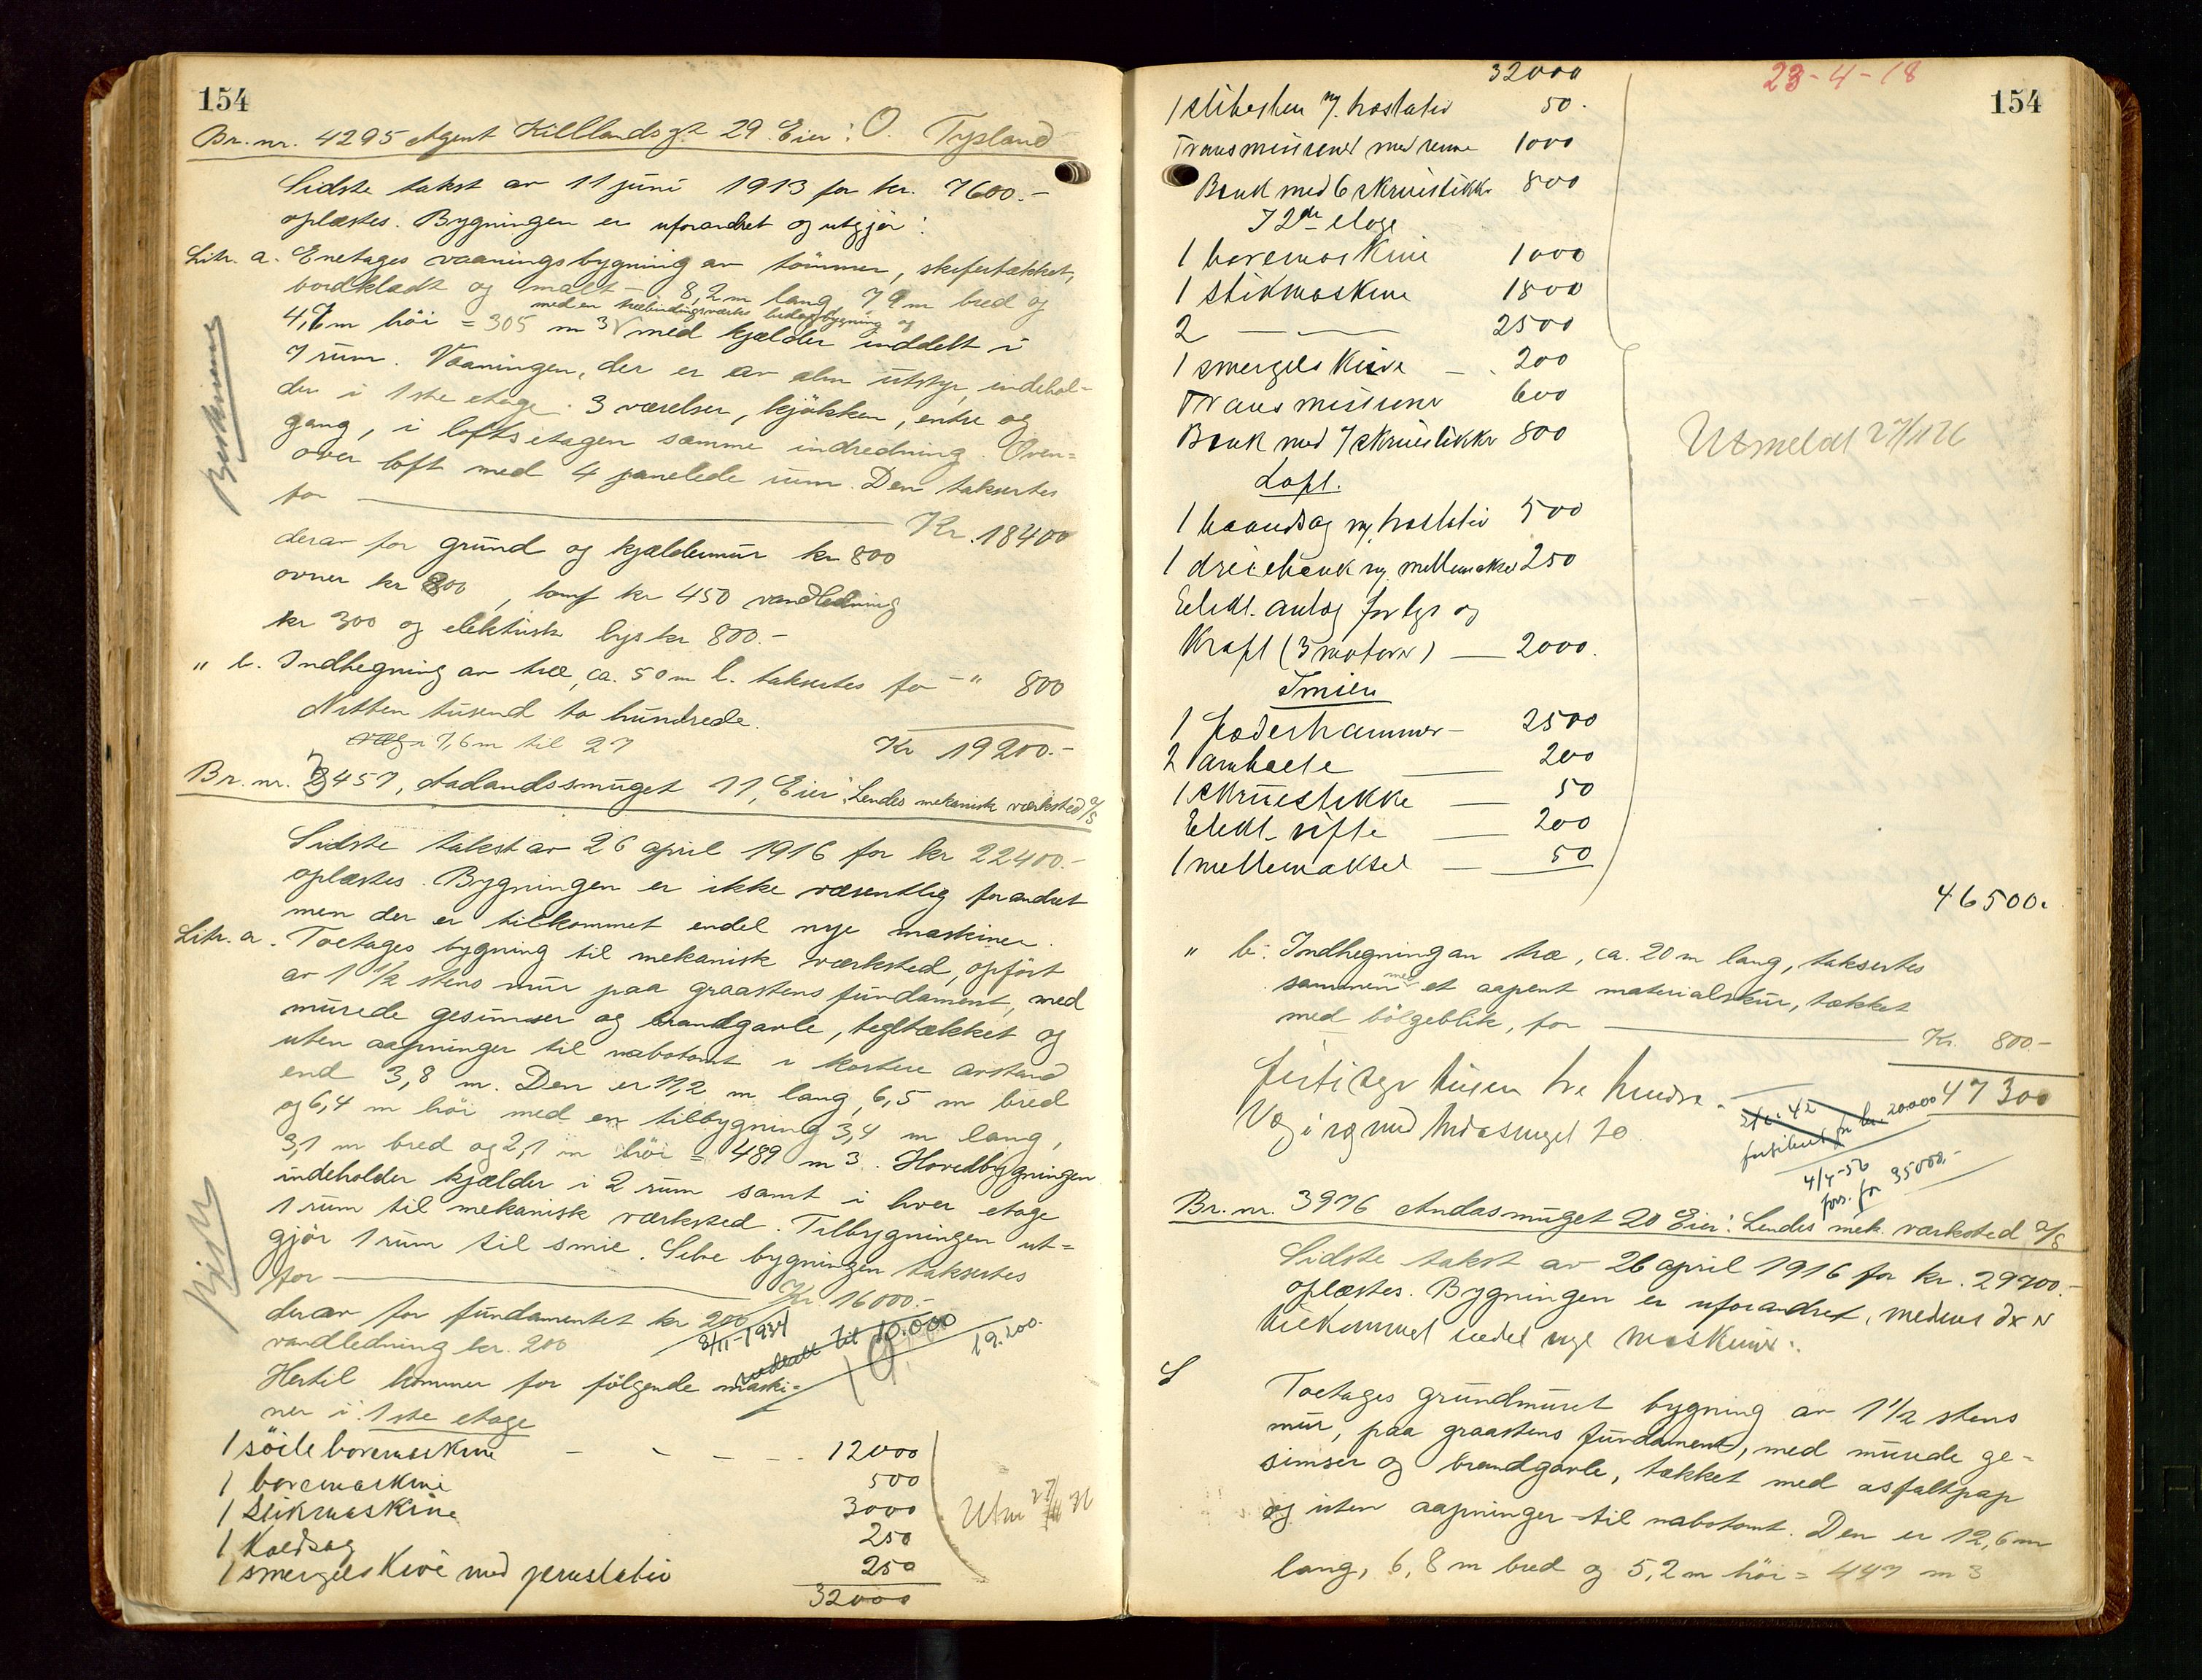 154
Br. nr. 4295 Agent Killlandsgt 29. Eier: O. Tysland
Sidste takst av 11 juni 1913 for kr. 7600.-
oplæstes. Bygningen er uforandret og utgjør:
Litr. a. Enetages vaaningsbygning av tømmer, skifertækket,
bordklædt og malt - 8,2 m lang, 7,9 m bred og
med en træbindingsværks bislagsbygning og
4,7 m høi = 305 m3 med kjælder inddelt i
7 rum. Vaaningen, der er av alm utstyr, indehol-
der i 1ste etage: 3 værelser, kjøkken, entre og
gang, i loftsetagen samme indredning. Oven-
over loft med 4 panelede rum. Den taksertes
for Kr. 18400
derav for grund og kjældermur kr 800
ovner kr 800, komf kr 450 vandledning
kr 300 og elektrisk lys kr 800.-
" b. Indhegning av træ, ca. 50 m l. taksertes for - " 800
Nitten tusend to hundrede.
Kr 19200.-
7,6 m til 27
Br. nr. 3457, Aadlandssmuget 11, Eier: Lendes mekaniske værksted A/S
Sidste takst av 26 april 1916 for kr 22400.-
oplæstes. Bygningen er ikke væsentlig forandret
men der er tilkommet endel nye maskiner.
Litr. a. Toetages bygning til mekanisk værksted, opført
av 1 1/2 stens mur paa graastens fundament, med
murede gesimser og brandgavle, tegltækket og
uten aapninger til nabotomt i kortere avstand
end 3,8 m. Den er 11,2 m lang, 6,5 m bred
og 6,4 m høi med en tilbygning 3,4 m lang,
3,1 m bred og 2,1 m høi = 489 m3. Hovedbygningen
indeholder kjælder i 2 rum samt i hver etage
1 rum til mekanisk værksted. Tilbygningen ut-
gjør 1 rum til smie. Selve bygningen taksertes
for Kr 16000.-
derav for fundamentet kr 200
vandledning kr. 200
8/11-1934
nedsatt til 10.000
19.200.
Hertil kommer for følgende maski-
ner i 1ste etage
1 søileboremaskine 12000
1 boremaskine 500
1 Stikmaskine 3000
1 Koldsag 250
1 smergelskive med jernstativ 250
32000
154
23-4-18
32000
1 slibesten m/. træstativ 50.
Transmissioner med remme 1000
Benk med 6 skruestikker 800
I 2den etage
1 boremaskine 1000
1 stikmaskine 1800
2 — — 2500
1 smergelskive - 200
Transmissioner 600
Benk med 7 skruestikker 800
Utmeldt 27/11 26
Loft.
1 baandsag m. træstativ 500
1 dreiebenk m. mellemaksel 250
Elekt. anlæg for lys og
Kraft (3 motorer) — 2000.
Smien
1 Fjæderhammer - 2500
2 ambolte — 200
1 skruestikke — 50
Elekt. vifte — 200
1 mellemaksel — 50
46500.
" b. Indhegning av træ, ca. 20 m lang, taksertes
sammen med et aapent materialskur, tækket
med bølgeblik, for — Kr. 800-
47300
Førtisyv tusen tre hundre.
20000
4/4-56
fors. for 35000.-
Br. nr. 3976 Andasmuget 20 Eier: Lendes mek. værksted A/S
Sidste takst av 26 april 1916 for kr. 29700.-
oplæstes. Bygningen er uforandret, medens der er
tilkommet endel nye maskiner.
Toetages grundmuret bygning av 1 1/2 stens
mur, paa graastens fundament, med murede ge-
simser og brandgavle, tækket med asfaltpap
og uten aapninger til nabotomt. Den er 12,6 m
lang, 6,8 m bred og 5,2 m høi = 447 m3